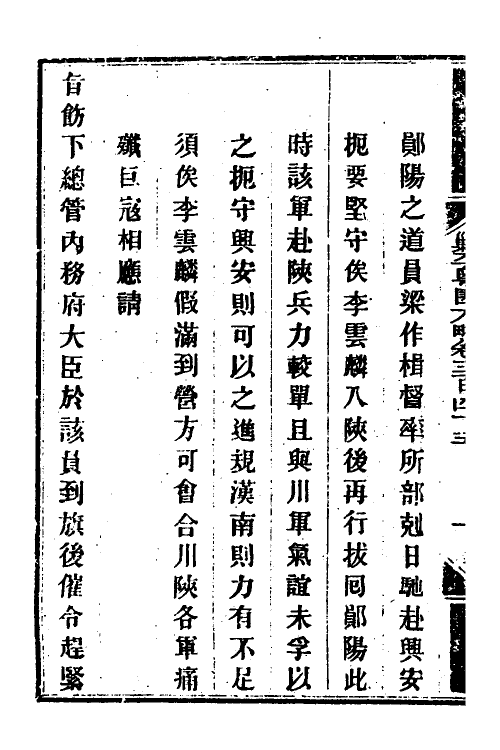 鄖陽之道員梁作楫督率所部剋日馳赴興安
扼要堅守俟李雲麟入陝後再行拔囘鄖陽此
時該軍赴陝兵力較單且與川軍氣誼未孚以
之扼守興安則可以之進規漢南則力有不足
須俟李雲麟假滿到營方可會合川陝各軍痛
殲巨寇相應請
旨飭下總管內務府大臣於該員到旗後催令趕緊